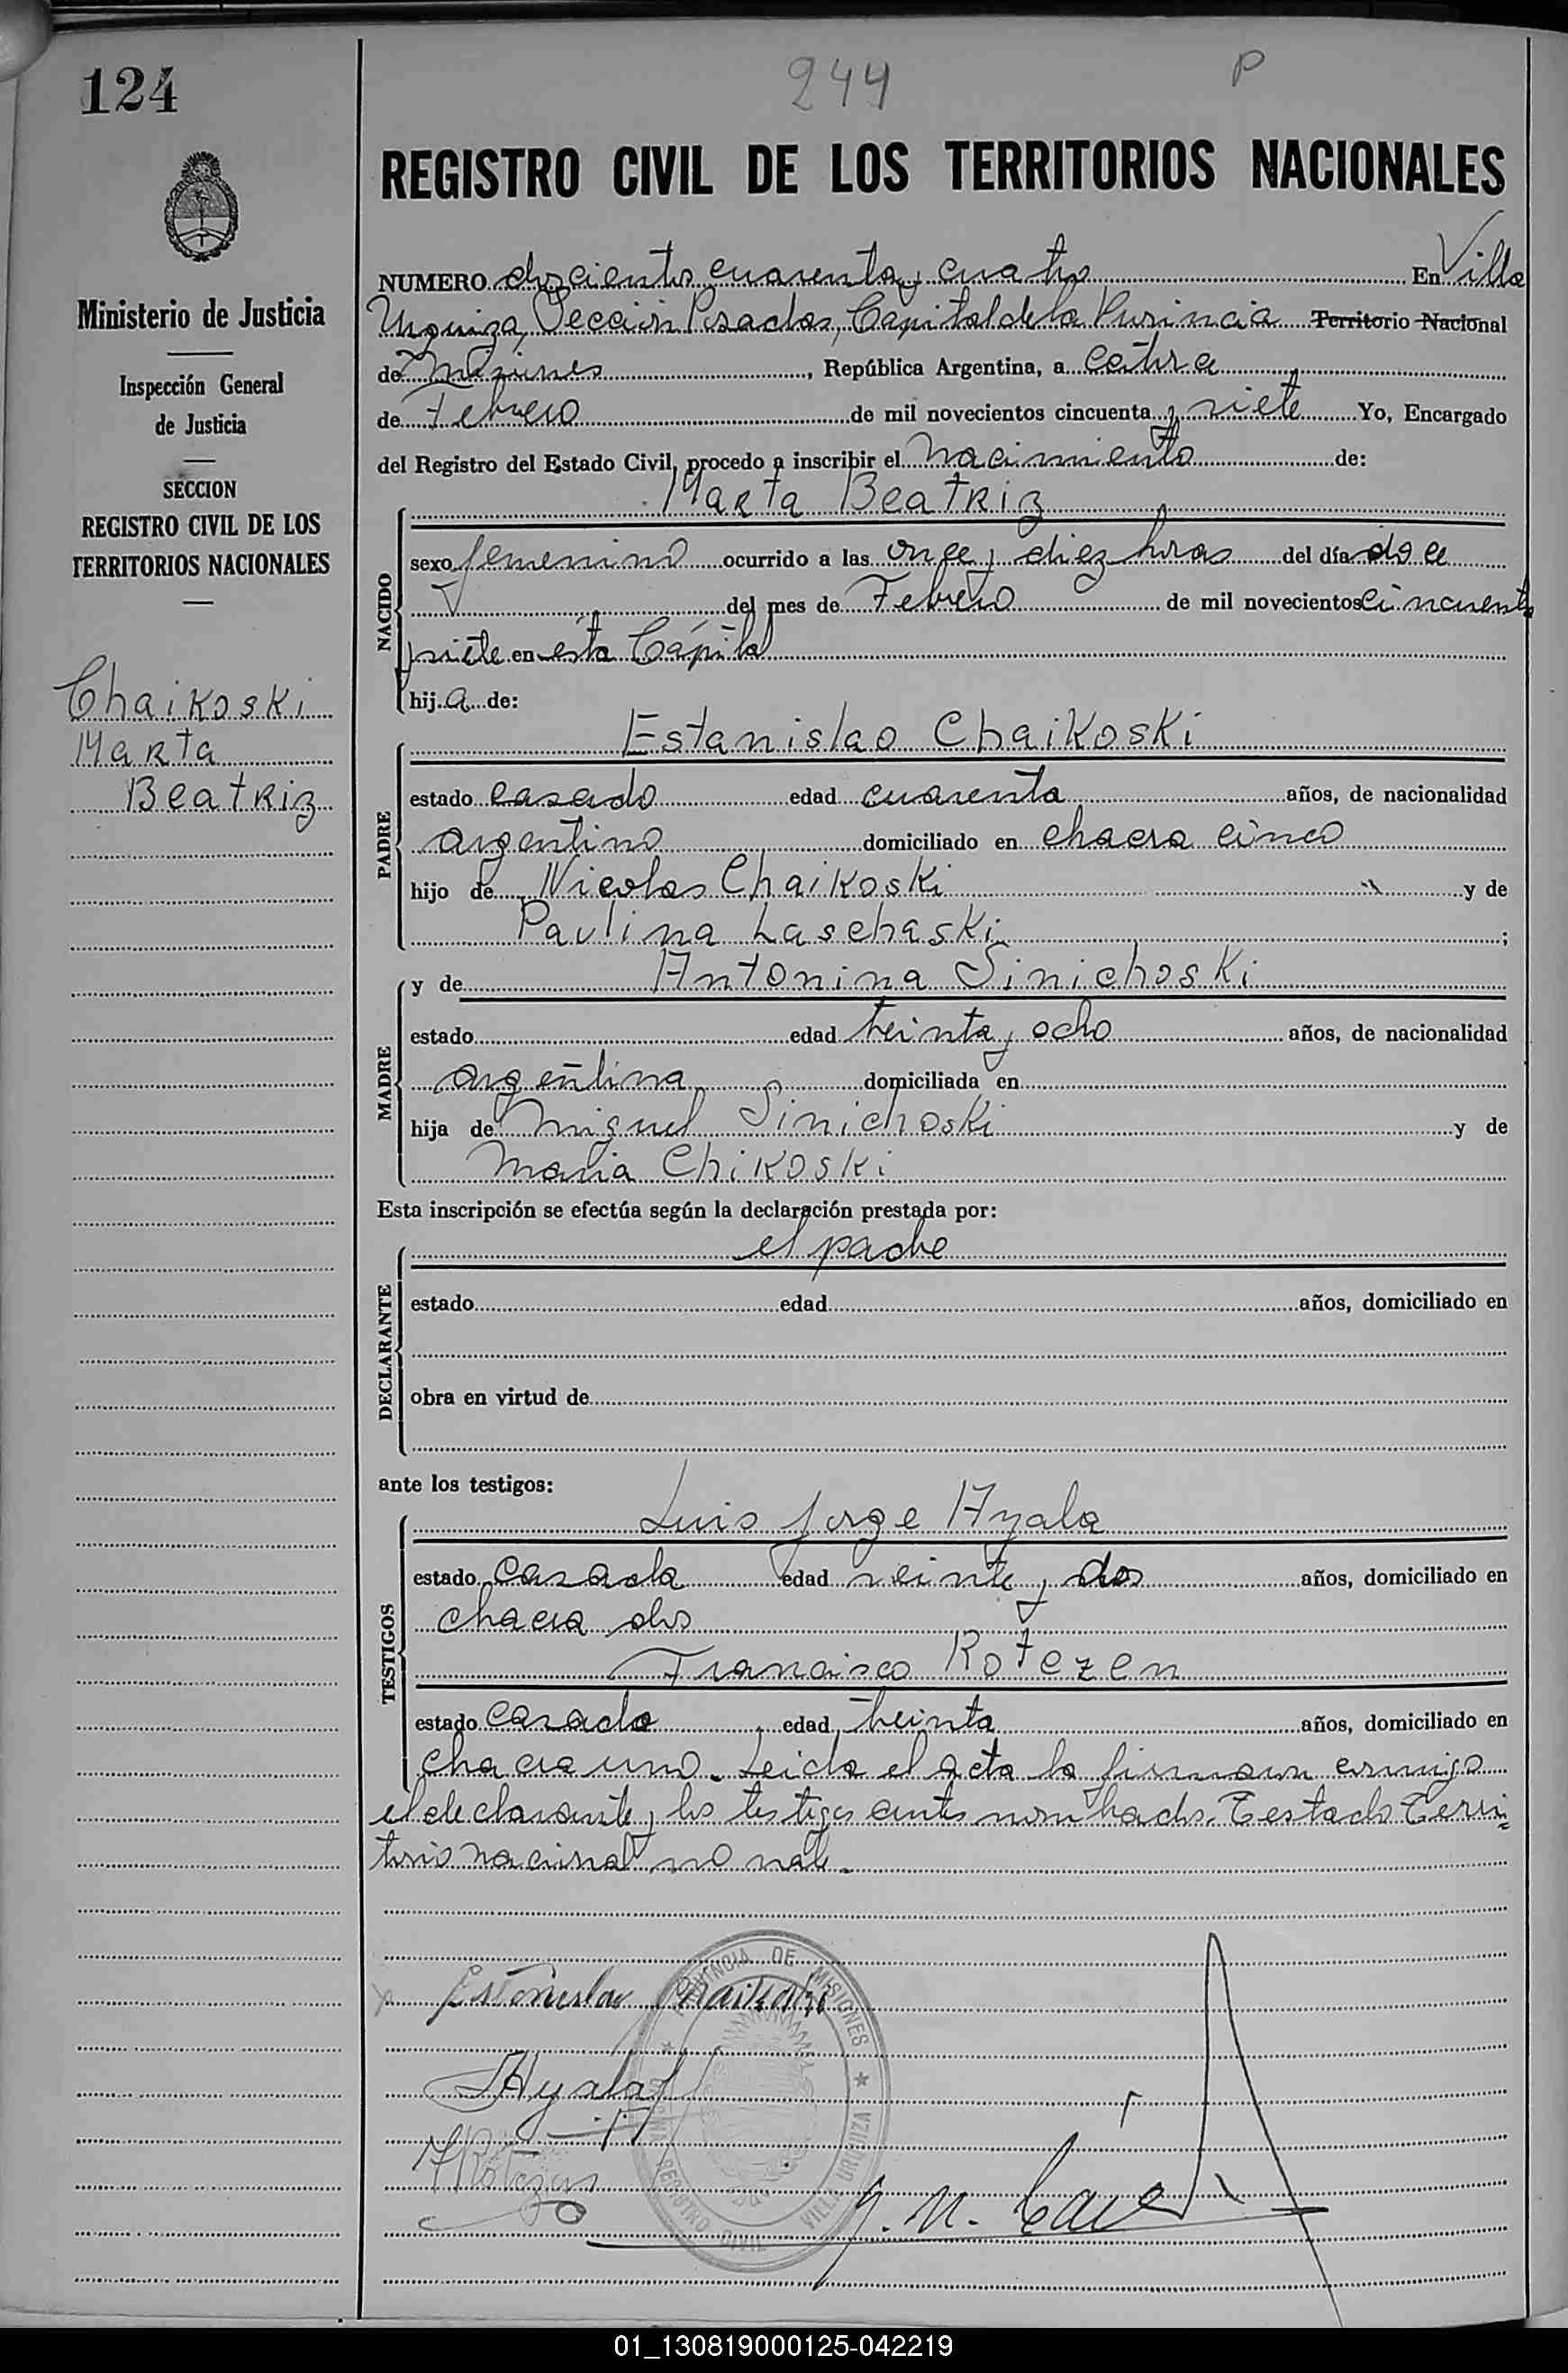 124
244
P
REGISTRO CIVIL DE LOS TERRITORIOS NACIONALES
Ministerio de Justicia
Inspección General
de Justicia
SECCION
REGISTRO CIVIL DE LOS
TERRITORIOS NACIONALES
Chaikoski
Marta
Beatriz
NUMERO doscientos cuarenta y cuatro En Villa
Urquiza, Sección Posadas, Capital de la Provincia Territorio Nacional
de Misiones, República Argentina, a catorce
de Febrero de mil novecientos cincuenta y siete Yo, Encargado
del Registro del Estado Civil, procedo a inscribir el nacimiento de:
Marta Beatriz
NACIDO
sexo femenino ocurrido a las once y diez horas del día doce
del mes de Febrero de mil novecientos cincuenta
y siete en ésta Capital
hija de:
Estanislao Chaikoski
PADRE
estado casado edad cuarenta años, de nacionalidad
argentino domiciliado en chacra cinco
hijo de Nicolas Chaikoski y de
Paulina Laschaski;
y de Antonina Sinichoski
MADRE
estado edad treinta y ocho años, de nacionalidad
argentina domiciliada en
hija de Miguel Sinichoski y de
Maria Chikoski
Esta inscripción se efectúa según la declaración prestada por:
el padre
DECLARANTE
estado edad años, domiciliado en
obra en virtud de
ante los testigos:
Luis Jorge Ayala
TESTIGOS
estado casado edad veinte y dos años, domiciliado en
chacra dos
Francisco Rotezen
estado casado edad treinta años, domiciliado en
chacra uno. Leida el acta la firmaron conmigo
el declarante y los testigos antes nombrados. Testado Terri=
torio nacional no vale.
Estanislao Chaikoski
Ayala
PROVINCIA DE MISIONES
REGISTRO CIVIL VILLA URQUIZA
01_130819000125-042219